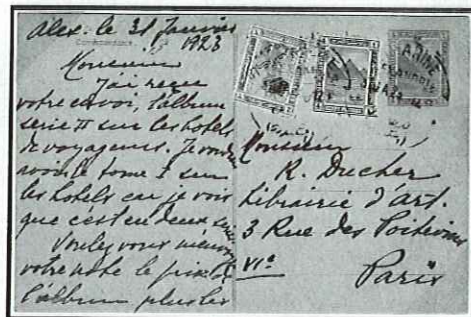 Alex. le 31 Janvier
1923
Monsieur
J'ai reçu
votre envoi, l'album
serie II sur les hotels
de voyageurs. Je
avoir le tome I sur
les hotels car je vois
que c'est en deux
Voulez vous
votre note le prix de
l'album plus les
Monsieur
R. Ducher
Librairie d'art.
3 Rue des Poitevins
VIe
Paris